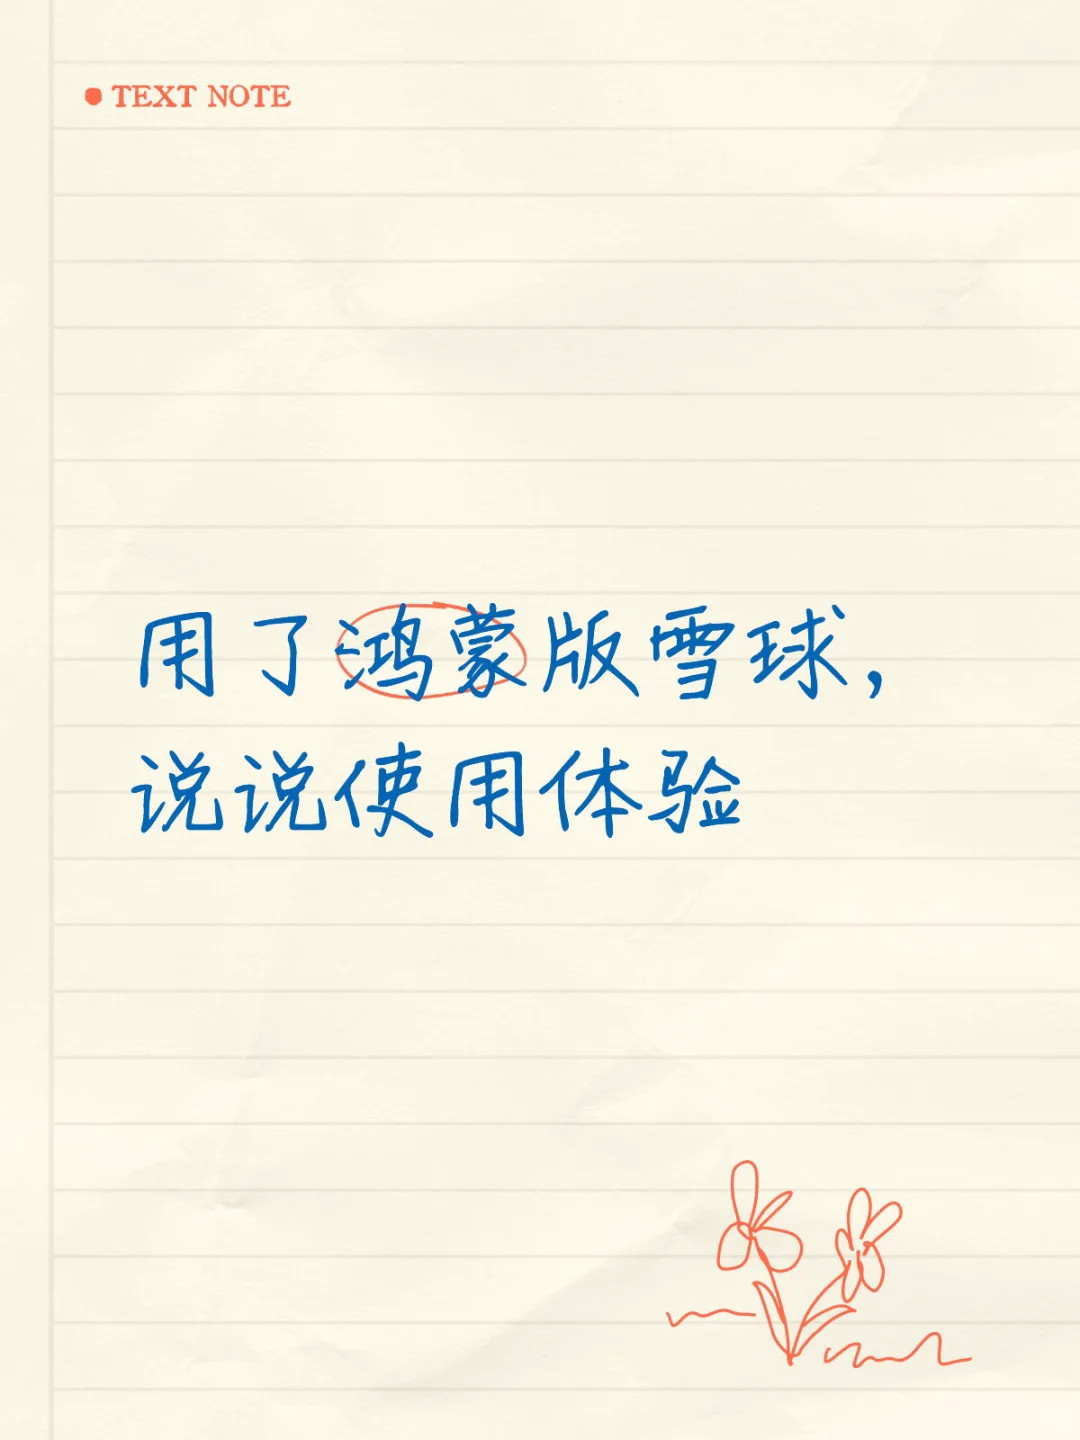 TEXT NOTE
用了鸿蒙版雪球，
说说使用体验